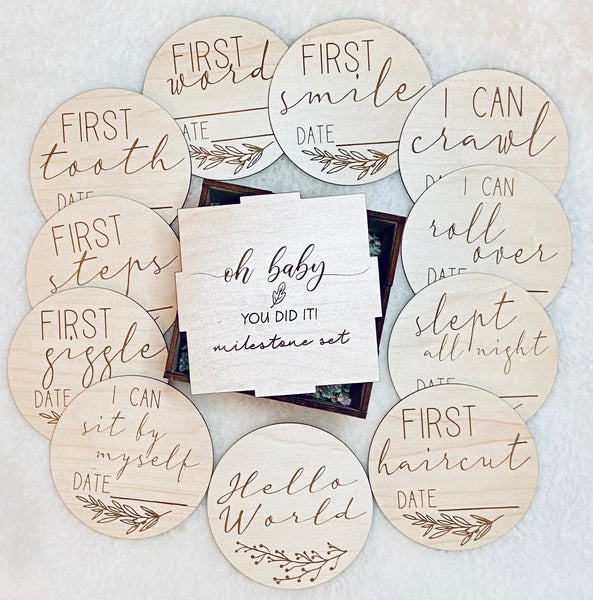 FIRST
word
DATE
FIRST
smile
DATE
I CAN
crawl
DATE
I CAN
roll
over
DATE
slept
all night
DATE
FIRST
haircut
DATE
Hello
World
I CAN
sit by
myself
DATE
FIRST
giggle
DATE
FIRST
steps
FIRST
tooth
DATE
oh baby
YOU DID IT!
milestone set